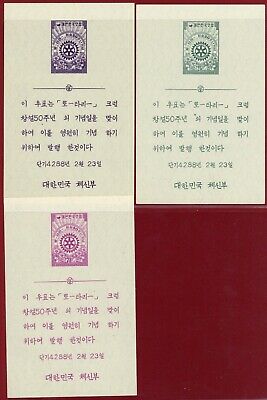 이 우표는 「로-타리-」 크럽
창설50주년 의 기념일을 맞이
하여 이을 영원히 기념 하기
위하여 발행 한것이다
단기4288년 2월 23일
대한민국 체신부
이 우표는 「로-타리-」 크럽
창설50주년 의 기념일을 맞이
하여 이을 영원히 기념 하기
위하여 발행 한것이다
단기4288년 2월 23일
대한민국 체신부
이 우표는 「로-타리-」 크럽
창설50주년 의 기념일을 맞이
하여 이을 영원히 기념 하기
위하여 발행 한것이다
단기4288년 2월 23일
대한민국 체신부